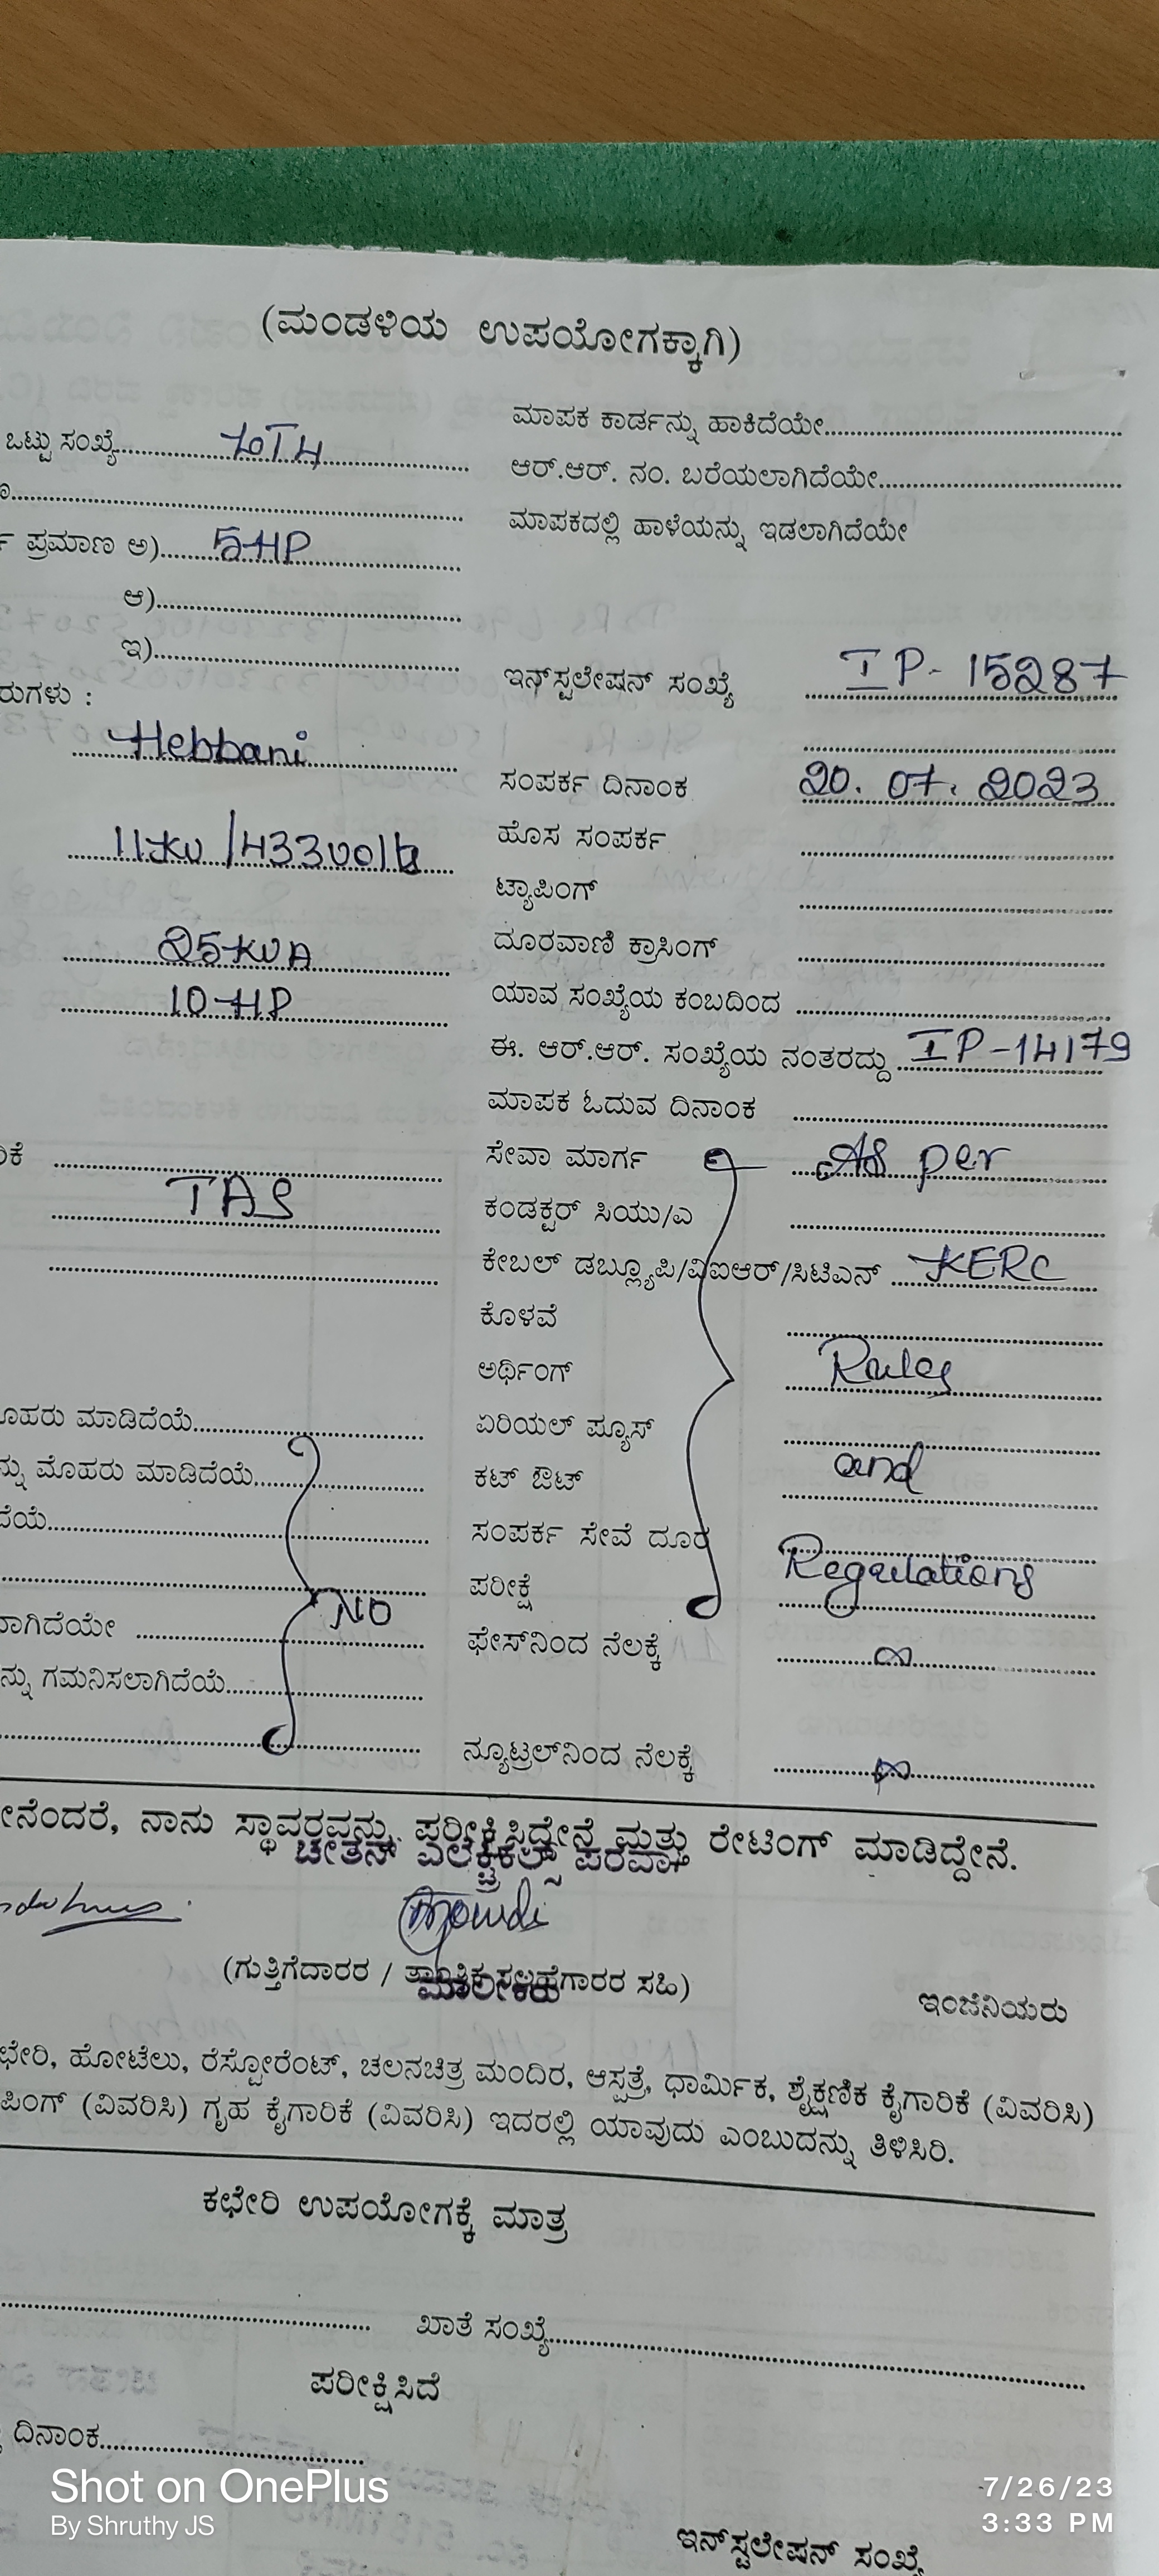 (ಮಂಡಳಿಯ ಉಪಯೋಗಕ್ಕಾಗಿ)
ಒಟ್ಟು ಸಂಖ್ಯೆ
ಮಾಪಕ ಕಾರ್ಡನ್ನು ಹಾಕಿದೆಯೇ
ಆರ್.ಆರ್. ನಂ. ಬರೆಯಲಾಗಿದೆಯೇ
ಪ್ರಮಾಣ ಅ) 5HP
ಮಾಪಕದಲ್ಲಿ ಹಾಳೆಯನ್ನು ಇಡಲಾಗಿದೆಯೇ
ಆ)
ಇ)
ಇನ್‌ಸ್ಟಲೇಷನ್ ಸಂಖ್ಯೆ IP-15287
ರುಗಳು :
Hebbani
ಸಂಪರ್ಕ ದಿನಾಂಕ 20.07.2023
11KV/433volts
ಹೊಸ ಸಂಪರ್ಕ
ಟ್ಯಾಪಿಂಗ್
25KVA
ದೂರವಾಣಿ ಕ್ರಾಸಿಂಗ್
10HP
ಯಾವ ಸಂಖ್ಯೆಯ ಕಂಬದಿಂದ
ಈ. ಆರ್.ಆರ್. ಸಂಖ್ಯೆಯ ನಂತರದ್ದು IP-14179
ಮಾಪಕ ಓದುವ ದಿನಾಂಕ
ಸೇವಾ ಮಾರ್ಗ As per
TAS
ಕಂಡಕ್ಟರ್ ಸಿಯು/ಎ
ಕೇಬಲ್ ಡಬ್ಲ್ಯೂಪಿ/ವಿಐಆರ್/ಸಿಟಿಎನ್ KERC
ಕೊಳವೆ
ಅರ್ಥಿಂಗ್ Rules
ಮೊಹರು ಮಾಡಿದೆಯೆ
ಏರಿಯಲ್ ಫ್ಯೂಸ್
ಮೊಹರು ಮಾಡಿದೆಯೆ
ಕಟ್ ಔಟ್ and
ಸಂಪರ್ಕ ಸೇವೆ ದೂರ
NO
ಪರೀಕ್ಷೆ Regulations
ಫೇಸ್‌ನಿಂದ ನೆಲಕ್ಕೆ ∞
ಗಮನಿಸಲಾಗಿದೆಯೆ
ನ್ಯೂಟ್ರಲ್‌ನಿಂದ ನೆಲಕ್ಕೆ ∞
ನಾನು ಸ್ಥಾವರವನ್ನು ಪರೀಕ್ಷಿಸಿದ್ದೇನೆ ಮತ್ತು ರೇಟಿಂಗ್ ಮಾಡಿದ್ದೇನೆ.
ಚೇತನ್ ಎಲೆಕ್ಟ್ರಿಕಲ್ಸ್ ಪರವಾಗಿ
(ಗುತ್ತಿಗೆದಾರರ / ತಾಂತ್ರಿಕ ಸಲಹೆಗಾರರ ಸಹಿ)
ಮಾಲೀಕರು
ಇಂಜಿನಿಯರು
ಛೇರಿ, ಹೋಟೆಲು, ರೆಸ್ಟೋರೆಂಟ್, ಚಲನಚಿತ್ರ ಮಂದಿರ, ಆಸ್ಪತ್ರೆ, ಧಾರ್ಮಿಕ, ಶೈಕ್ಷಣಿಕ ಕೈಗಾರಿಕೆ (ವಿವರಿಸಿ)
ಪಿಂಗ್ (ವಿವರಿಸಿ) ಗೃಹ ಕೈಗಾರಿಕೆ (ವಿವರಿಸಿ) ಇದರಲ್ಲಿ ಯಾವುದು ಎಂಬುದನ್ನು ತಿಳಿಸಿರಿ.
ಕಛೇರಿ ಉಪಯೋಗಕ್ಕೆ ಮಾತ್ರ
ಖಾತೆ ಸಂಖ್ಯೆ
ಪರೀಕ್ಷಿಸಿದೆ
ದಿನಾಂಕ
Shot on OnePlus
By Shruthy JS
7/26/23
3:33 PM
ಇನ್‌ಸ್ಟಲೇಷನ್ ಸಂಖ್ಯೆ